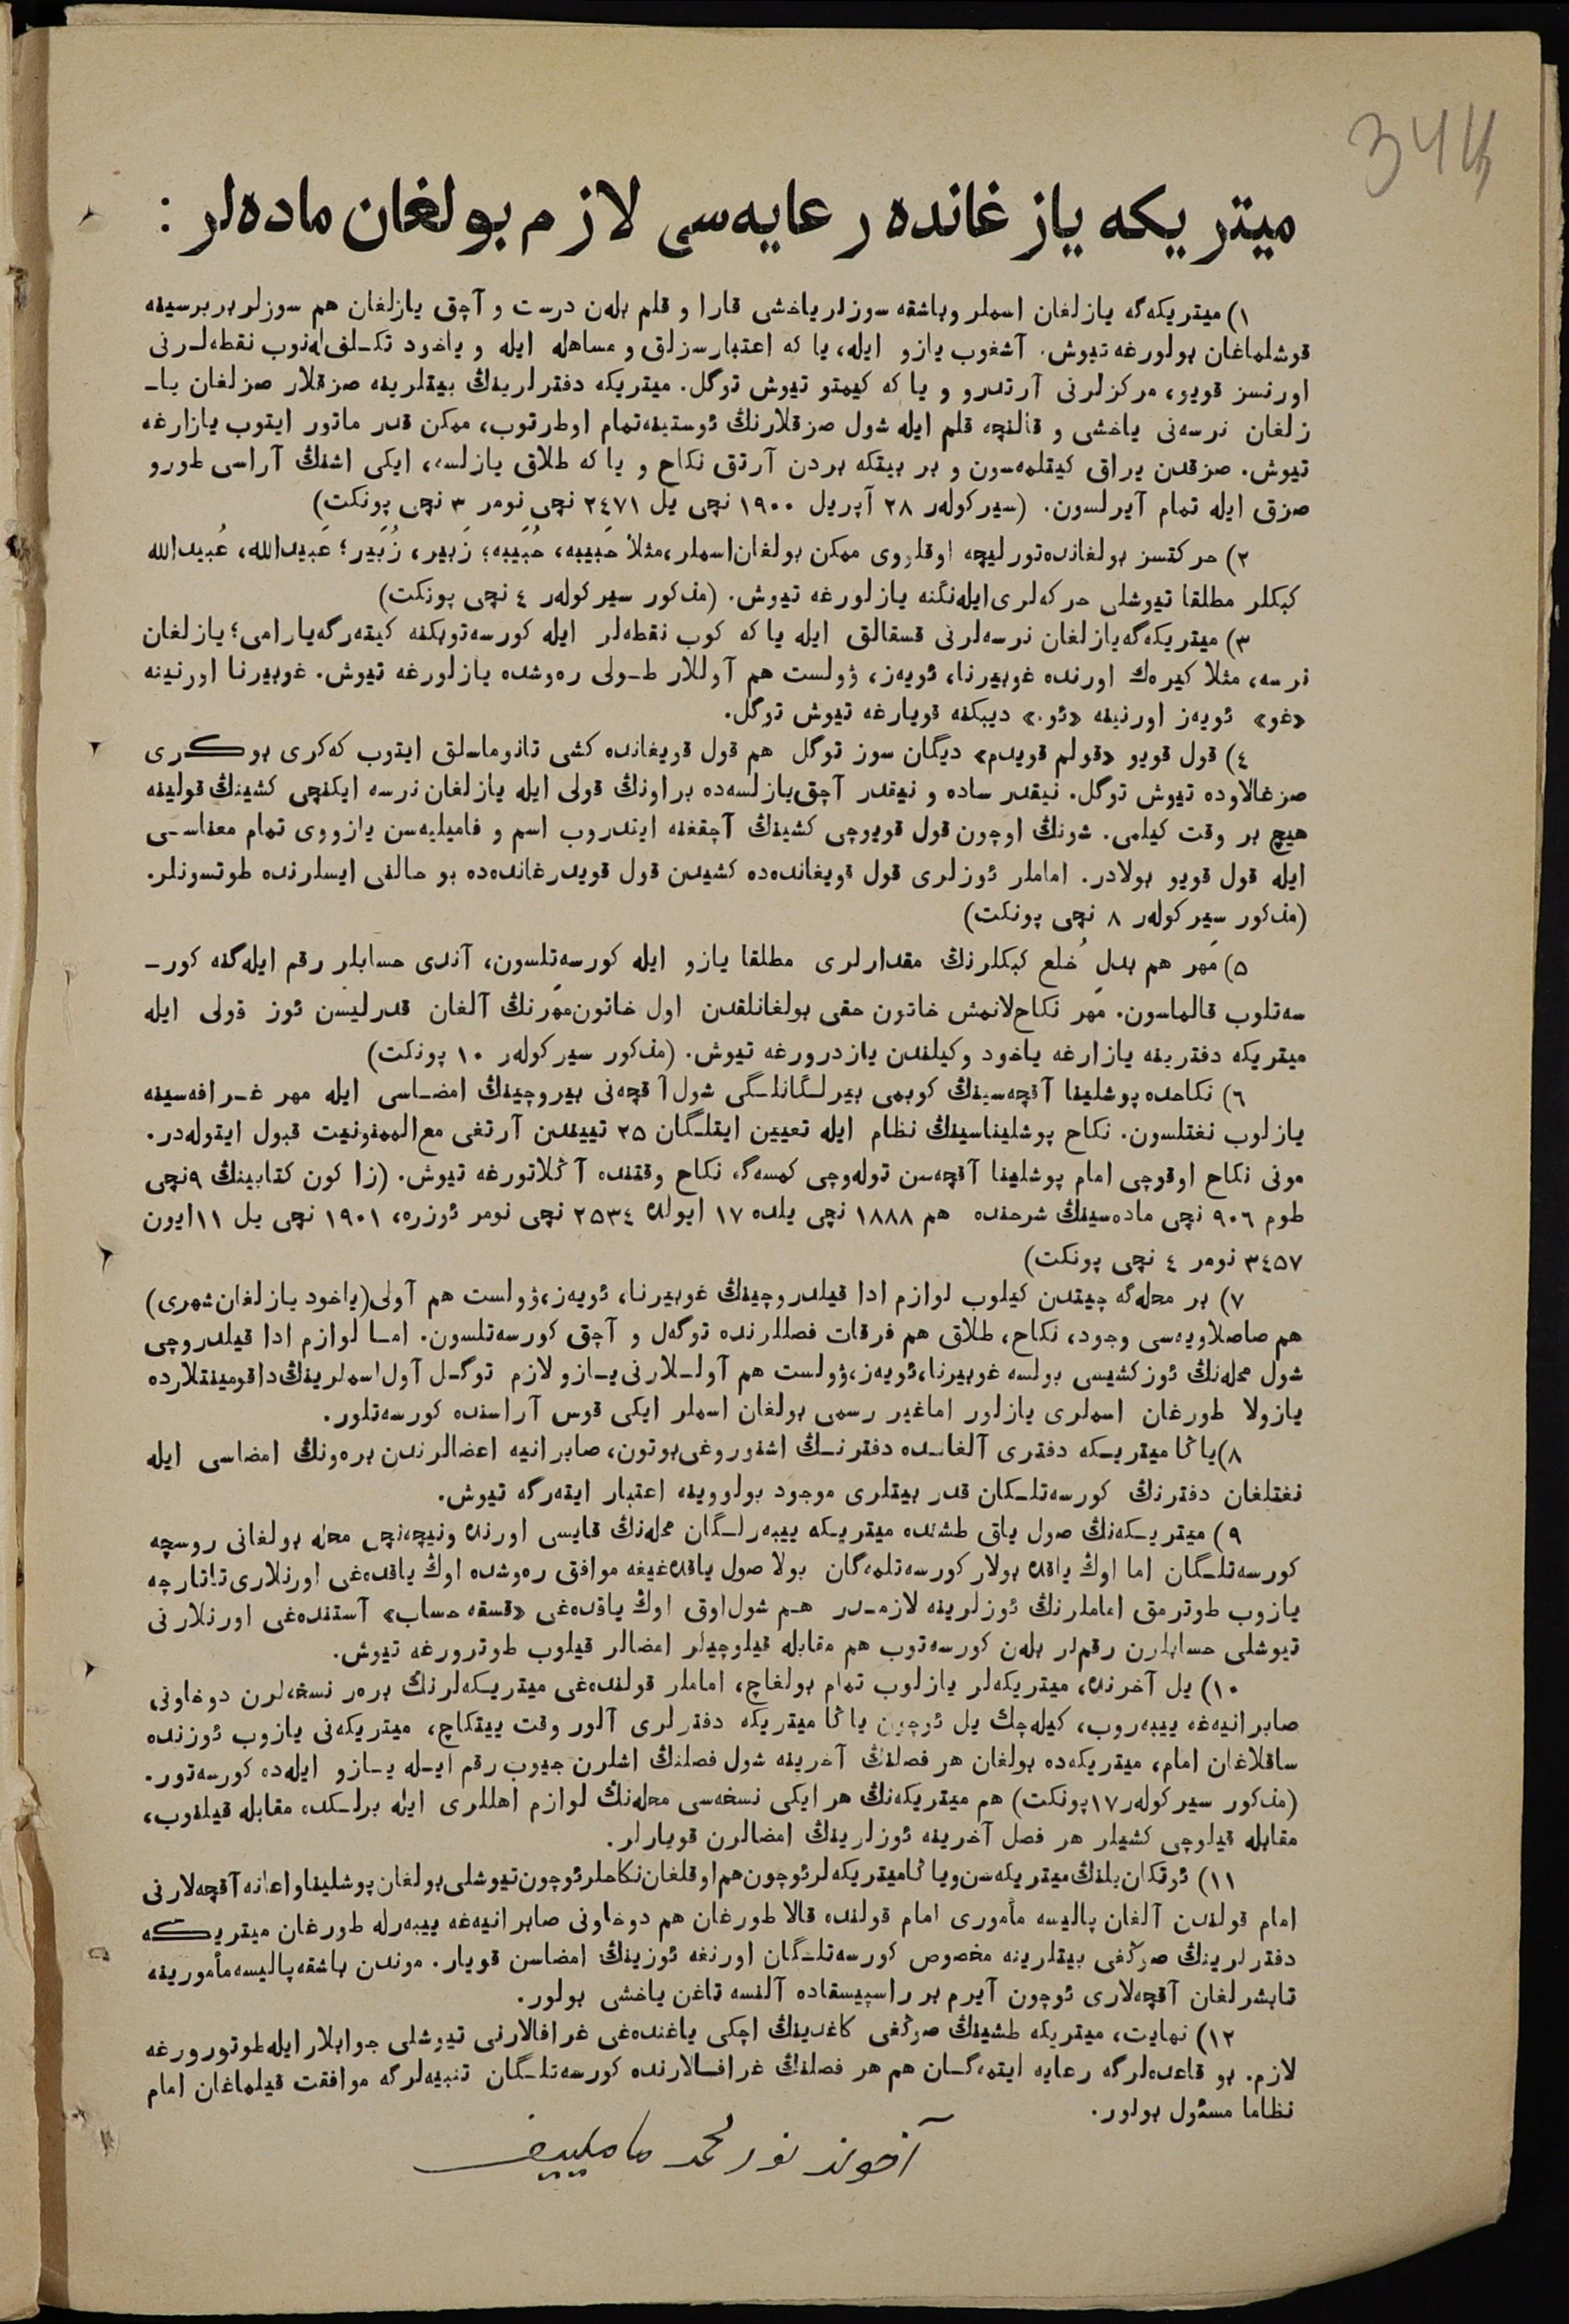 34 об
میتریكه یازغانده رعایه‌سی لازم بولغان ماده‌لر :
١) میتریكه‌گه یازلغان اسملر وباشقه سوزلر یاخشی قارا و قلم بله‌ن درست و آچق یازلغان هم سوزلر بربرسینه
قوشلماغان بولورغه تیوش. آشغوب یازو ایله، یا كه اعتبارسزلق و مساهله ایله و یاخود تكـلف‌له‌نوب نقطه‌لـرنی
اورنسز قویو، مركزلرنی آرتدرو و یا كه كیمتو تیوش توگل. میتریكه دفترلرینڭ بیتلرینه صزقلار صزلغان یاـ
زلغان نرسه‌نی یاخشی و قالنچه قلم ایله شول صزقلارنڭ ئوستینه‌تمام اوطرتوب، ممكن قدر ماتور ایتوب یازارغه
تیوش. صزقدن یراق كیتلمه‌سون و بر بیتكه بردن آرتق نكاح و یا كه طلاق یازلسه، ایكی اشنڭ آراسی طورو
صزق ایله تمام آیرلسون. (سیركوله‌ر ٢٨ آپریل ١٩٠٠ نچی یل ٢٤٧١ نچی نومر ٣ نچی پونكت)
٢) حركتسز بولغانده‌تورلیچه اوقلووی ممكن بولغان‌اسملر،مثلاً حَبیبه، حُبَیبه؛ زَبیر، زُبَیر؛ عَبیدالله، عُبیدالله
كبكلر مطلقا تیوشلی حركه‌لری‌ایله‌نگنه یازلورغه تیوش. (مذكور سیركوله‌ر ٤ نچی پونكت)
٣) میتریكه‌گه‌یازلغان نرسه‌لرنی قسقالق ایله یا كه كوب نقطه‌لر ایله كورسه‌توبكنه كیته‌رگه‌یارامی؛ یازلغان
نرسه، مثلا كیره‌ك اورنده غوبیرنا، ئویه‌ز، ۋولست هم آوللار طـولی ره‌وشده یازلورغه تیوش. غوبیرنا اورنینه
«غو» ئویه‌ز اورنینه «ئو.» دیبكنه قویارغه تیوش توگل.
٤) قول قویو «قولم قویدم» دیگان سوز توگل هم قول قویغانده كشی تانوماسلق ایتوب كه‌كری بوكری
صزغالاوده تیوش توگل. نیقدر ساده و نیقدر آچق‌یازلسه‌ده براونڭ قولی ایله یازلغان نرسه ایكنچی كشینڭ قولینه
هیچ بر وقت كیلمی. شونڭ اوچون قول قویوچی كشینڭ آچقغنه ایتدروب اسم و فامیلیه‌سن یازووی تمام معناسـی
ایله قول قویو بولادر. اماملر ئوزلری قول قویغانده‌ده كشیدن قول قویدرغانده‌ده بو حالنی ایسلرنده طوتسونلر.
(مذكور سیركوله‌ر ٨ نچی پونكت)
٥) مَهر هم بدلِ خُلع كبكلرنڭ مقدارلری مطلقا یازو ایله كورسه‌تلسون، آندی حسابلر رقم ایله‌گنه كورـ
سه‌تلوب قالماسون. مَهر نكاح‌لانمش خاتون حقی بولغانلقدن اول خاتون‌مَهرنڭ آلغان قدرلیسن ئوز قولی ایله
میتریكه دفترینه یازارغه یاخود وكیلندن یازدرورغه تیوش. (مذكور سیركوله‌ر ١٠ پونكت)
٦) نكاحده پوشلینا آقچه‌سینڭ كوبمی بیرلـگانلـگی شول آقچه‌نی بیروچینڭ امضـاسی ایله مهر غـرافه‌سینه
یازلوب نغتلسون. نكاح پوشلیناسینڭ نظام ایله تعیین ایتلـگان ٢٥ تییندن آرتغی مع‌الممنونیت قبول ایتوله‌در.
مونی نكاح اوقوچی امام پوشلینا آقچه‌سن توله‌وچی كمسه‌گه نكاح وقتنده آڭلاتورغه تیوش. (زاكون كتابینڭ ٩نچی
طوم ٩٠٦ نچی ماده‌سینڭ شرحنده هم ١٨٨٨ نچی یلده ١٧ ایولده ٢٥٣٤ نچی نومر ئوزره، ١٩٠١ نچی یل ١١ایون
٣٤٥٧ نومر ٤ نچی پونكت)
٧) بر محله‌گه چیتدن كیلوب لوازم ادا قیلدروچینڭ غوبیرنا، ئویه‌ز،ۋولست هم آولی(یاخود یازلغان‌شهری)
هم صاصلاویه‌سی وجود، نكاح، طلاق هم فرقات فصللرنده توگه‌ل و آچق كورسه‌تلسون. امـا لوازم ادا قیلدروچی
شول محله‌نڭ ئوز كشیسی بولسه غوبیرنا،ئویه‌ز،ۋولست هم آولـلارنی‌یـازو لازم توگـل آول‌اسملرینڭ‌داقومینتلارده
یازولا طورغان اسملری یازلور اماغیر رسمی بولغان اسملر ایكی قوس آراسنده كورسه‌تلور.
٨)یاڭا میتریـكه دفتری آلغانـده دفترنـڭ اشنوروغی‌بوتون، صابرانیه اعضالرندن بره‌ونڭ امضاسی ایله
نغتلغان دفترنڭ كورسه‌تلـكان قدر بیتلری موجود بولووینه اعتبار ایته‌رگه تیوش.
٩) میتریـكه‌نڭ صول یاق طشنده میتریـكه ییبه‌رلـگان محله‌نڭ قایسی اورنده ونیچه‌نچی محله بولغانی روسچه
كورسه‌تلـگان اما اوڭ یاقده بولار كورسه‌تلمه‌گان بولا صول یاقده‌غیغه موافق ره‌وشده اوڭ یاقده‌غی اورنلاری‌تاتارچه
یازوب طوترمق اماملرنڭ ئوزلرینه لازمـدر هـم شول‌اوق اوڭ یاقده‌غی «قسقه حساب» آستنده‌غی اورنلارنی
تیوشلی حسابلرن رقملر بله‌ن كورسه‌توب هم مقابله قیلوچیلر امضالر قیلوب طوترورغه تیوش.
١٠) یل آخرنده، میتریكه‌لر یازلوب تمام بولغاچ، اماملر قولنده‌غی میتریـكه‌لرنڭ بره‌ر نسخه‌لرن دوخاونی
صابرانیه‌غه ییبه‌روب، كیله‌چك یل ئوچون یاڭا میتریكه دفترلری آلور وقت ییتكاچ، میتریكه‌نی یازوب ئوزنده
ساقلاغان امام، میتریكه‌ده بولغان هر فصلنڭ آخرینه شول فصلنڭ اشلرن جیوب رقم ایـله یـازو ایله‌ده كورسه‌تور.
(مذكور سیركوله‌ر ١٧پونكت) هم میتریكه‌نڭ هر ایكی نسخه‌سی محله‌نڭ لوازم اهللری ایله برلـكده مقابله قیلنوب،
مقابله قیلوچی كشیلر هر فصل آخرینه ئوزلرینڭ امضالرن قویارلر.
١١) ئوتكان‌یلنڭ‌میتریكه‌سن‌ویاڭامیتریكه‌لرئوچون‌هم‌اوقلغان‌نكاحلرئوچون‌تیوشلی‌بولغان‌پوشلیناواعانه‌آقچه‌لارنی
امام قولندن آلغان پالیسه مأموری امام قولنده قالا طورغان هم دوخاونی صابرانیه‌غه ییبه‌رله طورغان میتریكه
دفترلرینڭ صوڭغی بیتلرینه مخصوص كورسه‌تلـگان اورنغه ئوزینڭ امضاسن قویار. موندن باشقه‌پالیسه‌مأمورینه
تابشرلغان آقچه‌لاری ئوچون آیرم بر راسپیسقاده آلنسه تاغن یاخشی بولور.
١٢) نهایت، میتریكه طشینڭ صوڭغی كاغدینڭ اچكی یاغنده‌غی غرافالارنی تیوشلی جوابلار ایله‌طوتورورغه
لازم. بو قاعده‌لرگه رعایه ایتمه‌گـان هم هر فصلنڭ غرافـالارنده كورسه‌تلـگان تنبیه‌لرگه موافقت قیلماغان امام
نظاما مسئول بولور.
آخوند نورمحمد ماملییف